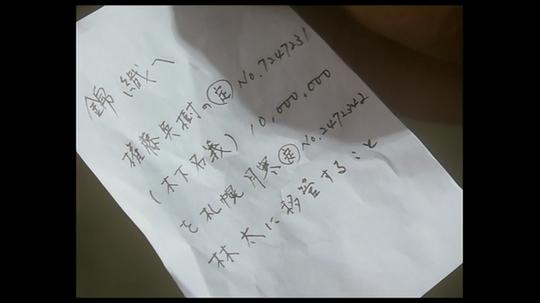 錦織へ
権藤兵樹の㊣ No.7247231
(木下名義) 10,000,000
を札幌月寒㊣No.2472342
林太に移管すること